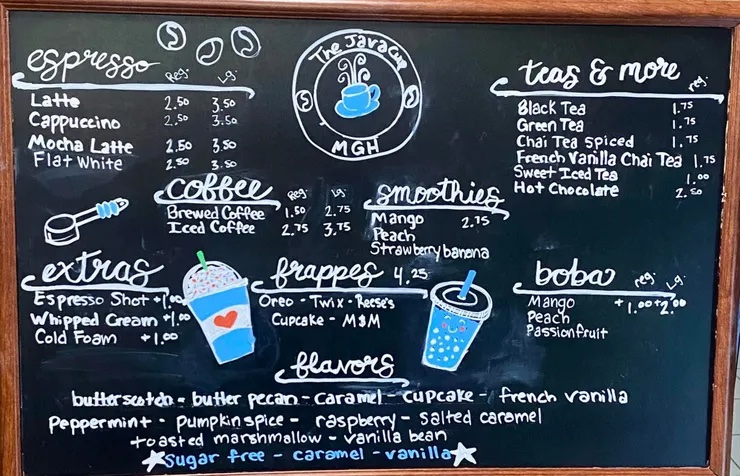 The JavaCup
MGH
espresso Reg. Lg.
Latte 2.50 3.50
Cappuccino 2.50 3.50
Mocha Latte 2.50 3.50
Flat White 2.50 3.50
teas & more reg.
Black Tea 1.75
Green Tea 1.75
Chai Tea Spiced 1.75
French Vanilla Chai Tea 1.75
Sweet Iced Tea 1.00
Hot Chocolate 2.50
coffee Reg. Lg.
Brewed Coffee 1.50 2.75
Iced Coffee 2.75 3.75
smoothies
Mango 2.75
Peach
Strawberry banana
extras
Espresso Shot +1.00
Whipped Cream +1.00
Cold Foam +1.00
frappes 4.25
Oreo - Twix - Reese's
Cupcake - M&M
boba reg. Lg.
Mango +1.00 +2.00
Peach
Passionfruit
flavors
butterscotch - butter pecan - caramel - cupcake - french vanilla
Peppermint - pumpkin spice - raspberry - salted caramel
toasted marshmallow - vanilla bean
sugar free - caramel - vanilla